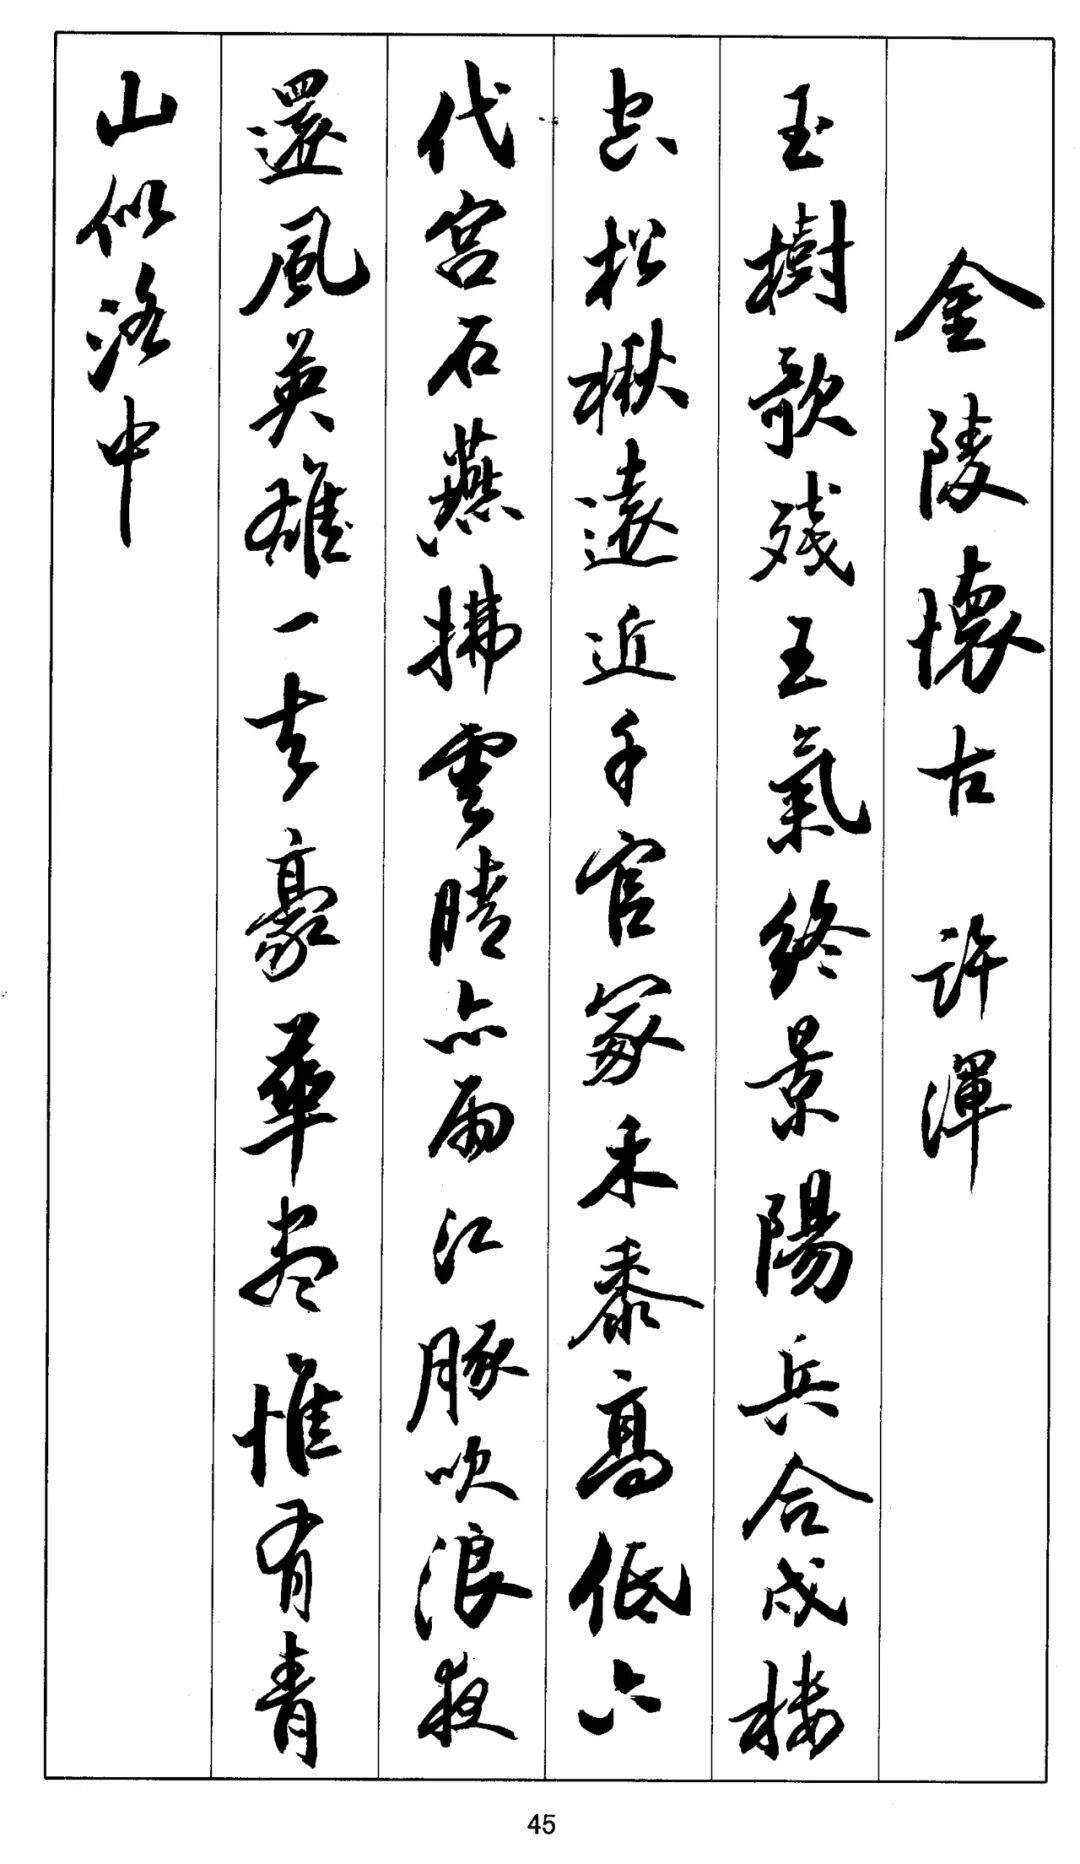 金陵懷古 許渾
玉樹歌残王氣終景陽兵合戍楼
空松楸遠近千官冢禾黍高低六
代宮石燕拂雲晴亦雨江豚吹浪夜
還風英雄一去豪華尽惟有青
山似洛中
45